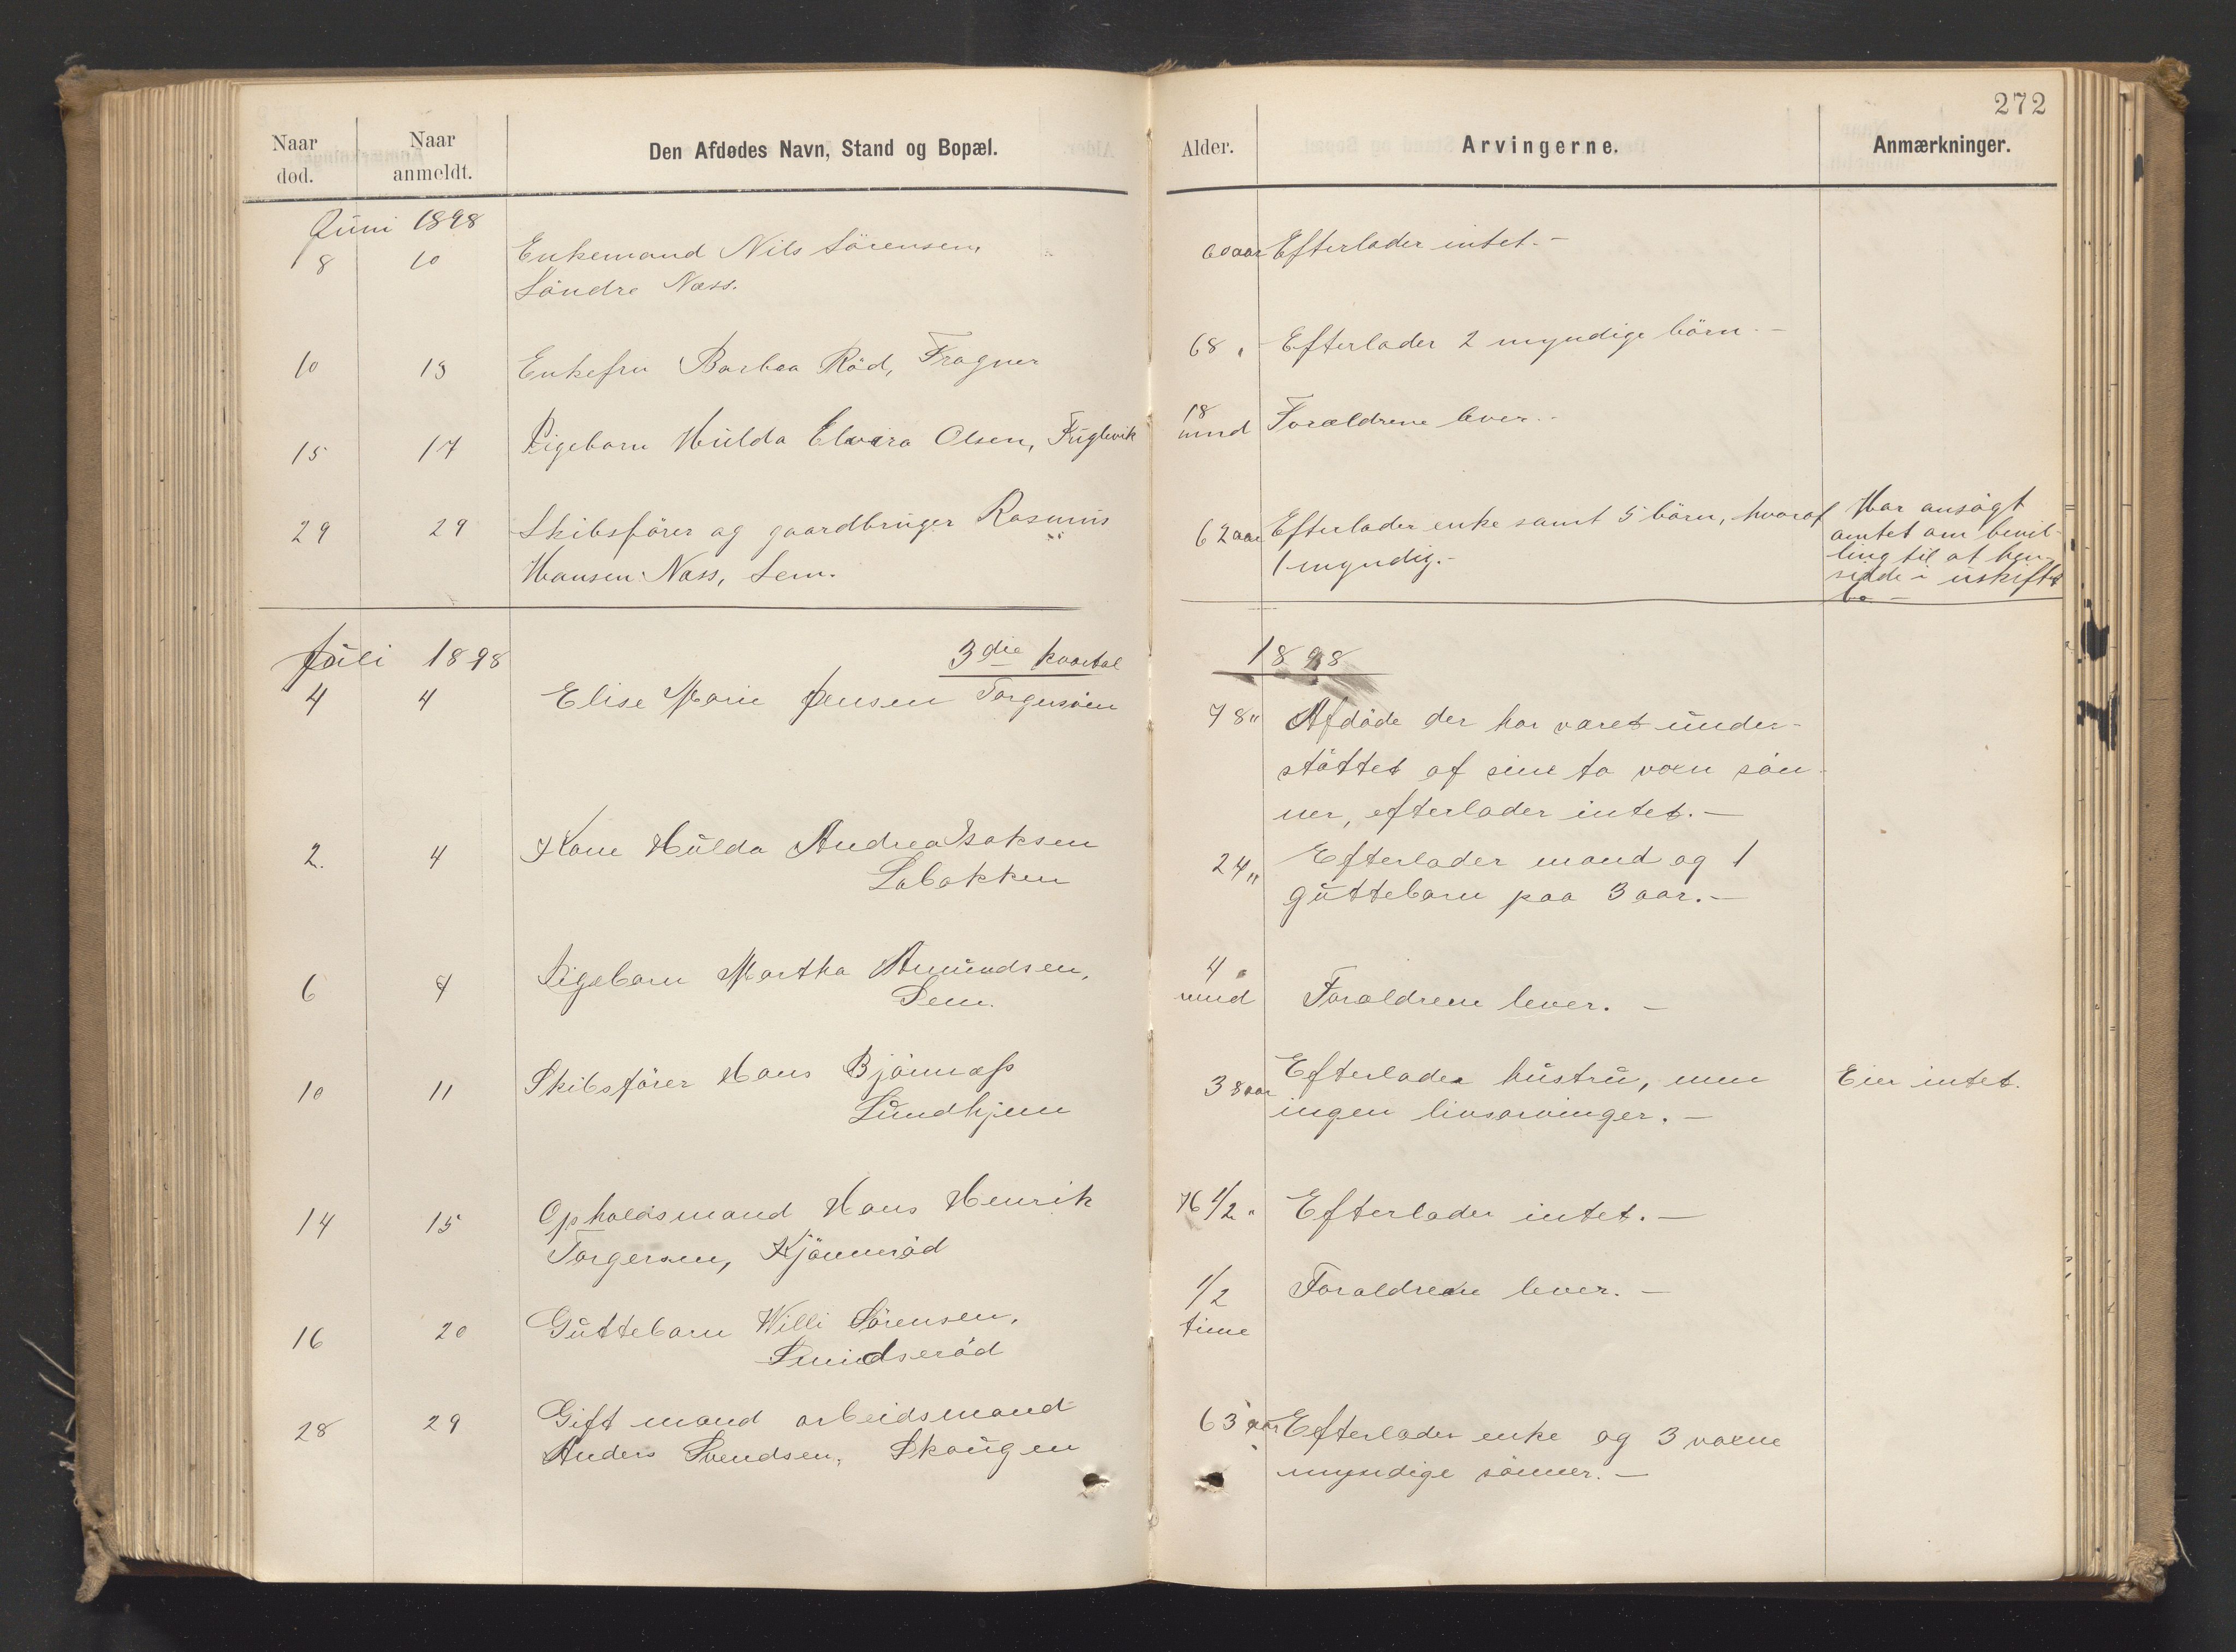 272
Naar død. Naar anmeldt. Den Afdødes Navn, Stand og Bopæl. Alder. Arvingerne. Anmærkninger.
Juni 1898
8 10 Enkemand Nils Sörensen, 60 aar Efterlader intet.-
Söndre Næss.
10 13 Enkefru Barbaa Röd, Fragner 68 " Efterlader 2 myndige börn.-
15 17 Pigebarn Hulda Elvira Olsen, Fuglevik 18 mnd Forældrene lever.-
29 29 Skibsförer og gaardbruger Rasmus 62 aar Efterlader enke samt 5 börn, hvoraf Har ansögt
Hansen Næss, Sem. 1 myndig.- amtet om bevil-
ling til at hen-
sidde i uskiftet
bo -
Juli 1898 3die kvartal 1898
4 4 Elise Marie Jensen Torgersöen 78 " Afdöde der har været under-
stöttet af sine to voxn sön-
ner, efterlader intet.-
2. 4 Kone Hulda Andrea Isaksen 24 " Efterlader mand og 1
Labakken guttebarn paa 3 aar.-
6 7 Pigebarn Martha Amundsen, 4 mnd Forældrene lever.-
Sem.
10 11 Skibsförer Hans Björnæss 38 aar Efterlader hustru, men Eier intet.
Lundhjem ingen livsarvinger.-
14 15 Opholdsmand Hans Henrik 76 1/2 " Efterlader intet.-
Torgersen, Kjönneröd
16 20 Guttebarn Willi Sörensen, 1/2 time Forældrene lever.-
Smidseröd
28 29 Gift mand arbeidsmand 63 aar Efterlader enke og 3 voxne
Anders Svendsen, Skaugen myndige sönner.-